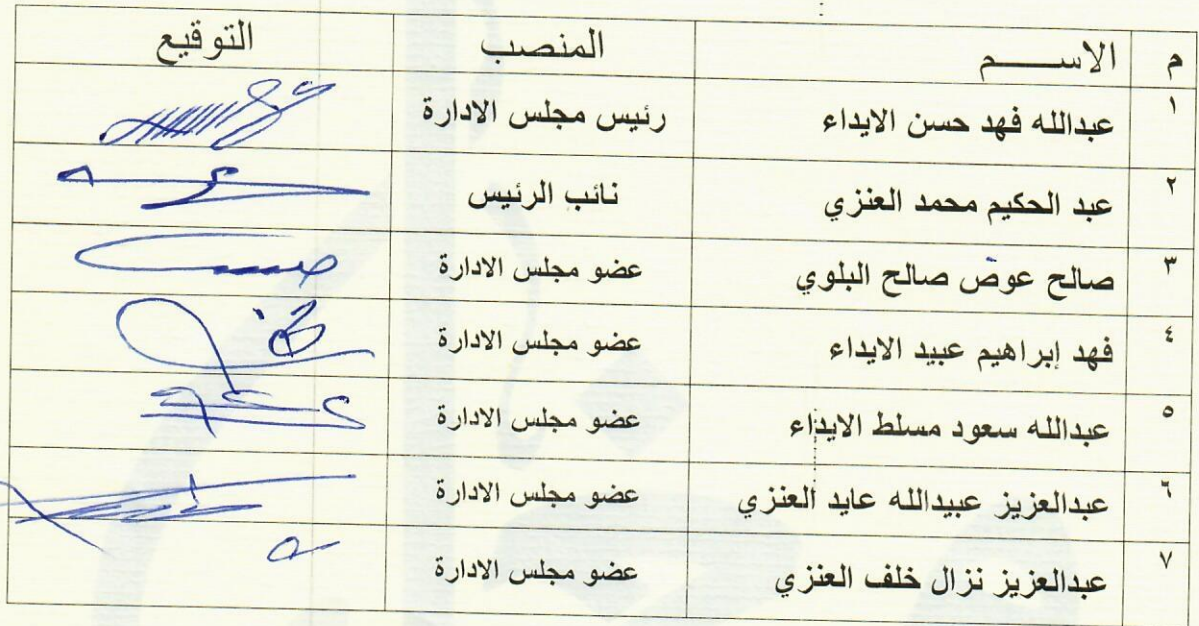 م الاســـــم المنصب التوقيع
١ عبدالله فهد حسن الايداء رئيس مجلس الادارة
٢ عبد الحكيم محمد العنزي نائب الرئيس
٣ صالح عوض صالح البلوي عضو مجلس الادارة
٤ فهد إبراهيم عبيد الايداء عضو مجلس الادارة
٥ عبدالله سعود مسلط الايداء عضو مجلس الادارة
٦ عبدالعزيز عبيدالله عايد العنزي عضو مجلس الادارة
٧ عبدالعزيز نزال خلف العنزي عضو مجلس الادارة